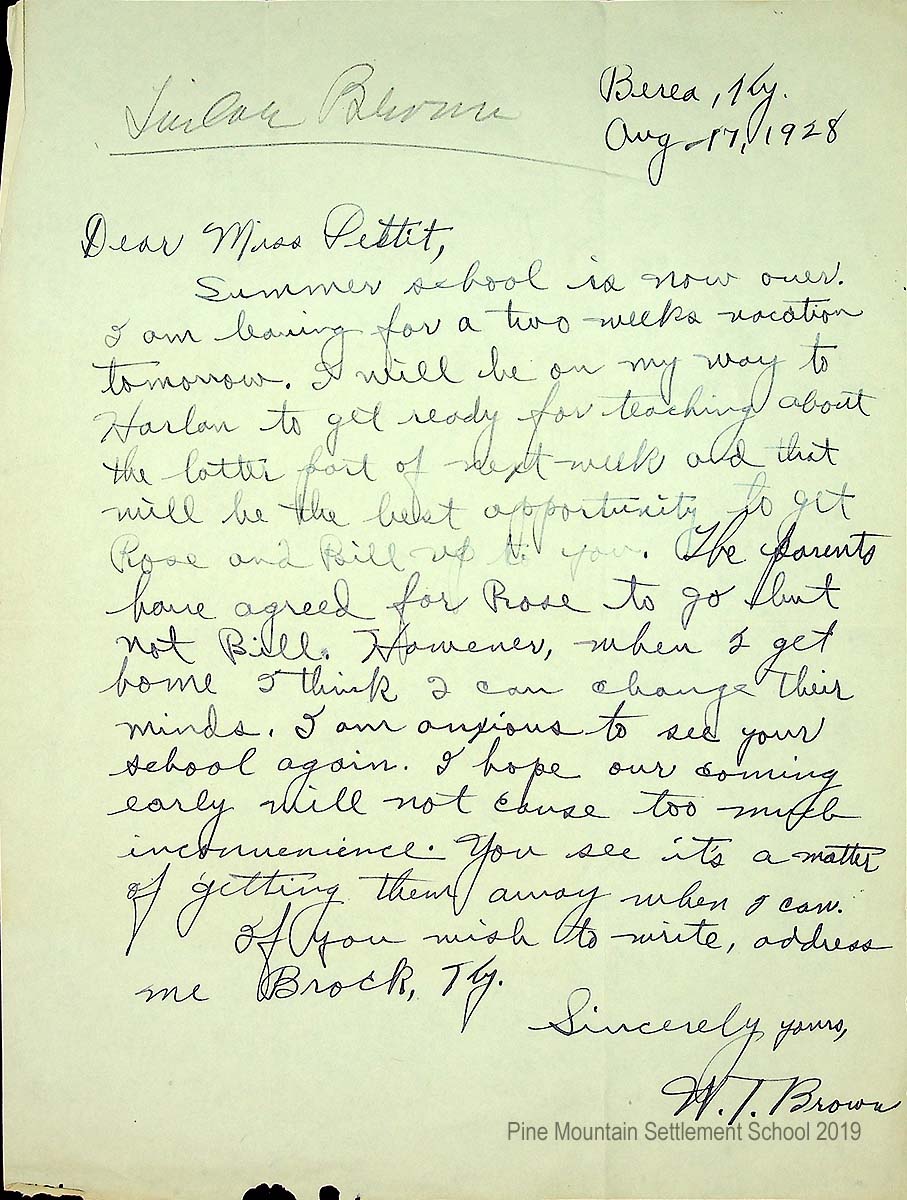 Brown
Berea, Ky.
Aug 17, 1928
Dear Miss Pettit,
Summer school is now over.
I am leaving for a two weeks vacation
tomorrow. I will be on my way to
Harlan to get ready for teaching about
the latter part of next week and that
will be the best opportunity to get
Rose and Bill up to you. The parents
have agreed for Rose to go but
not Bill. However, when I get
home I think I can change their
minds. I am anxious to see your
school again. I hope our coming
early will not cause too much
inconvenience. You see it's a matter
of getting them away when I can.
If you wish to write, address
me Brock, Ky.
Sincerely yours,
W. T. Brown
Pine Mountain Settlement School 2019